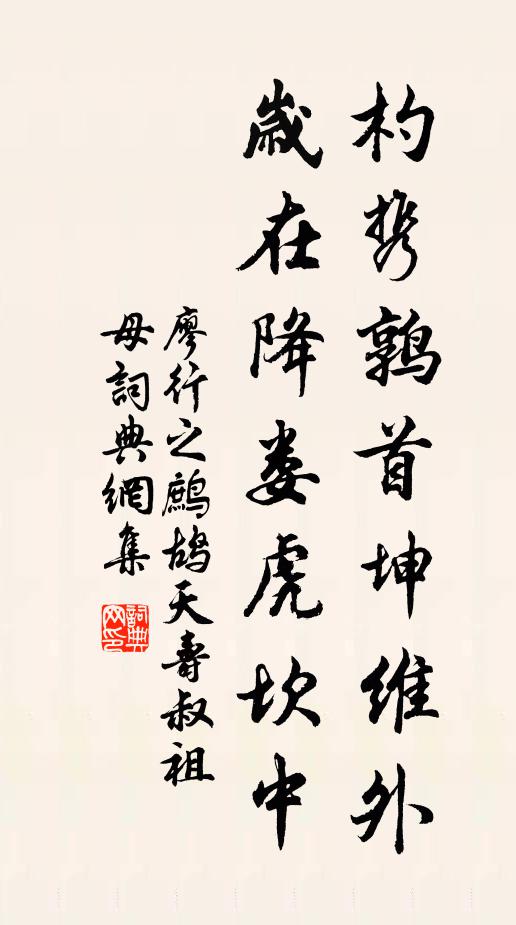 杓携鹑首坤維外
歲在降娄虎坎中
廖行之鷓鴣天壽叔祖
母詞典網集
詞典网印